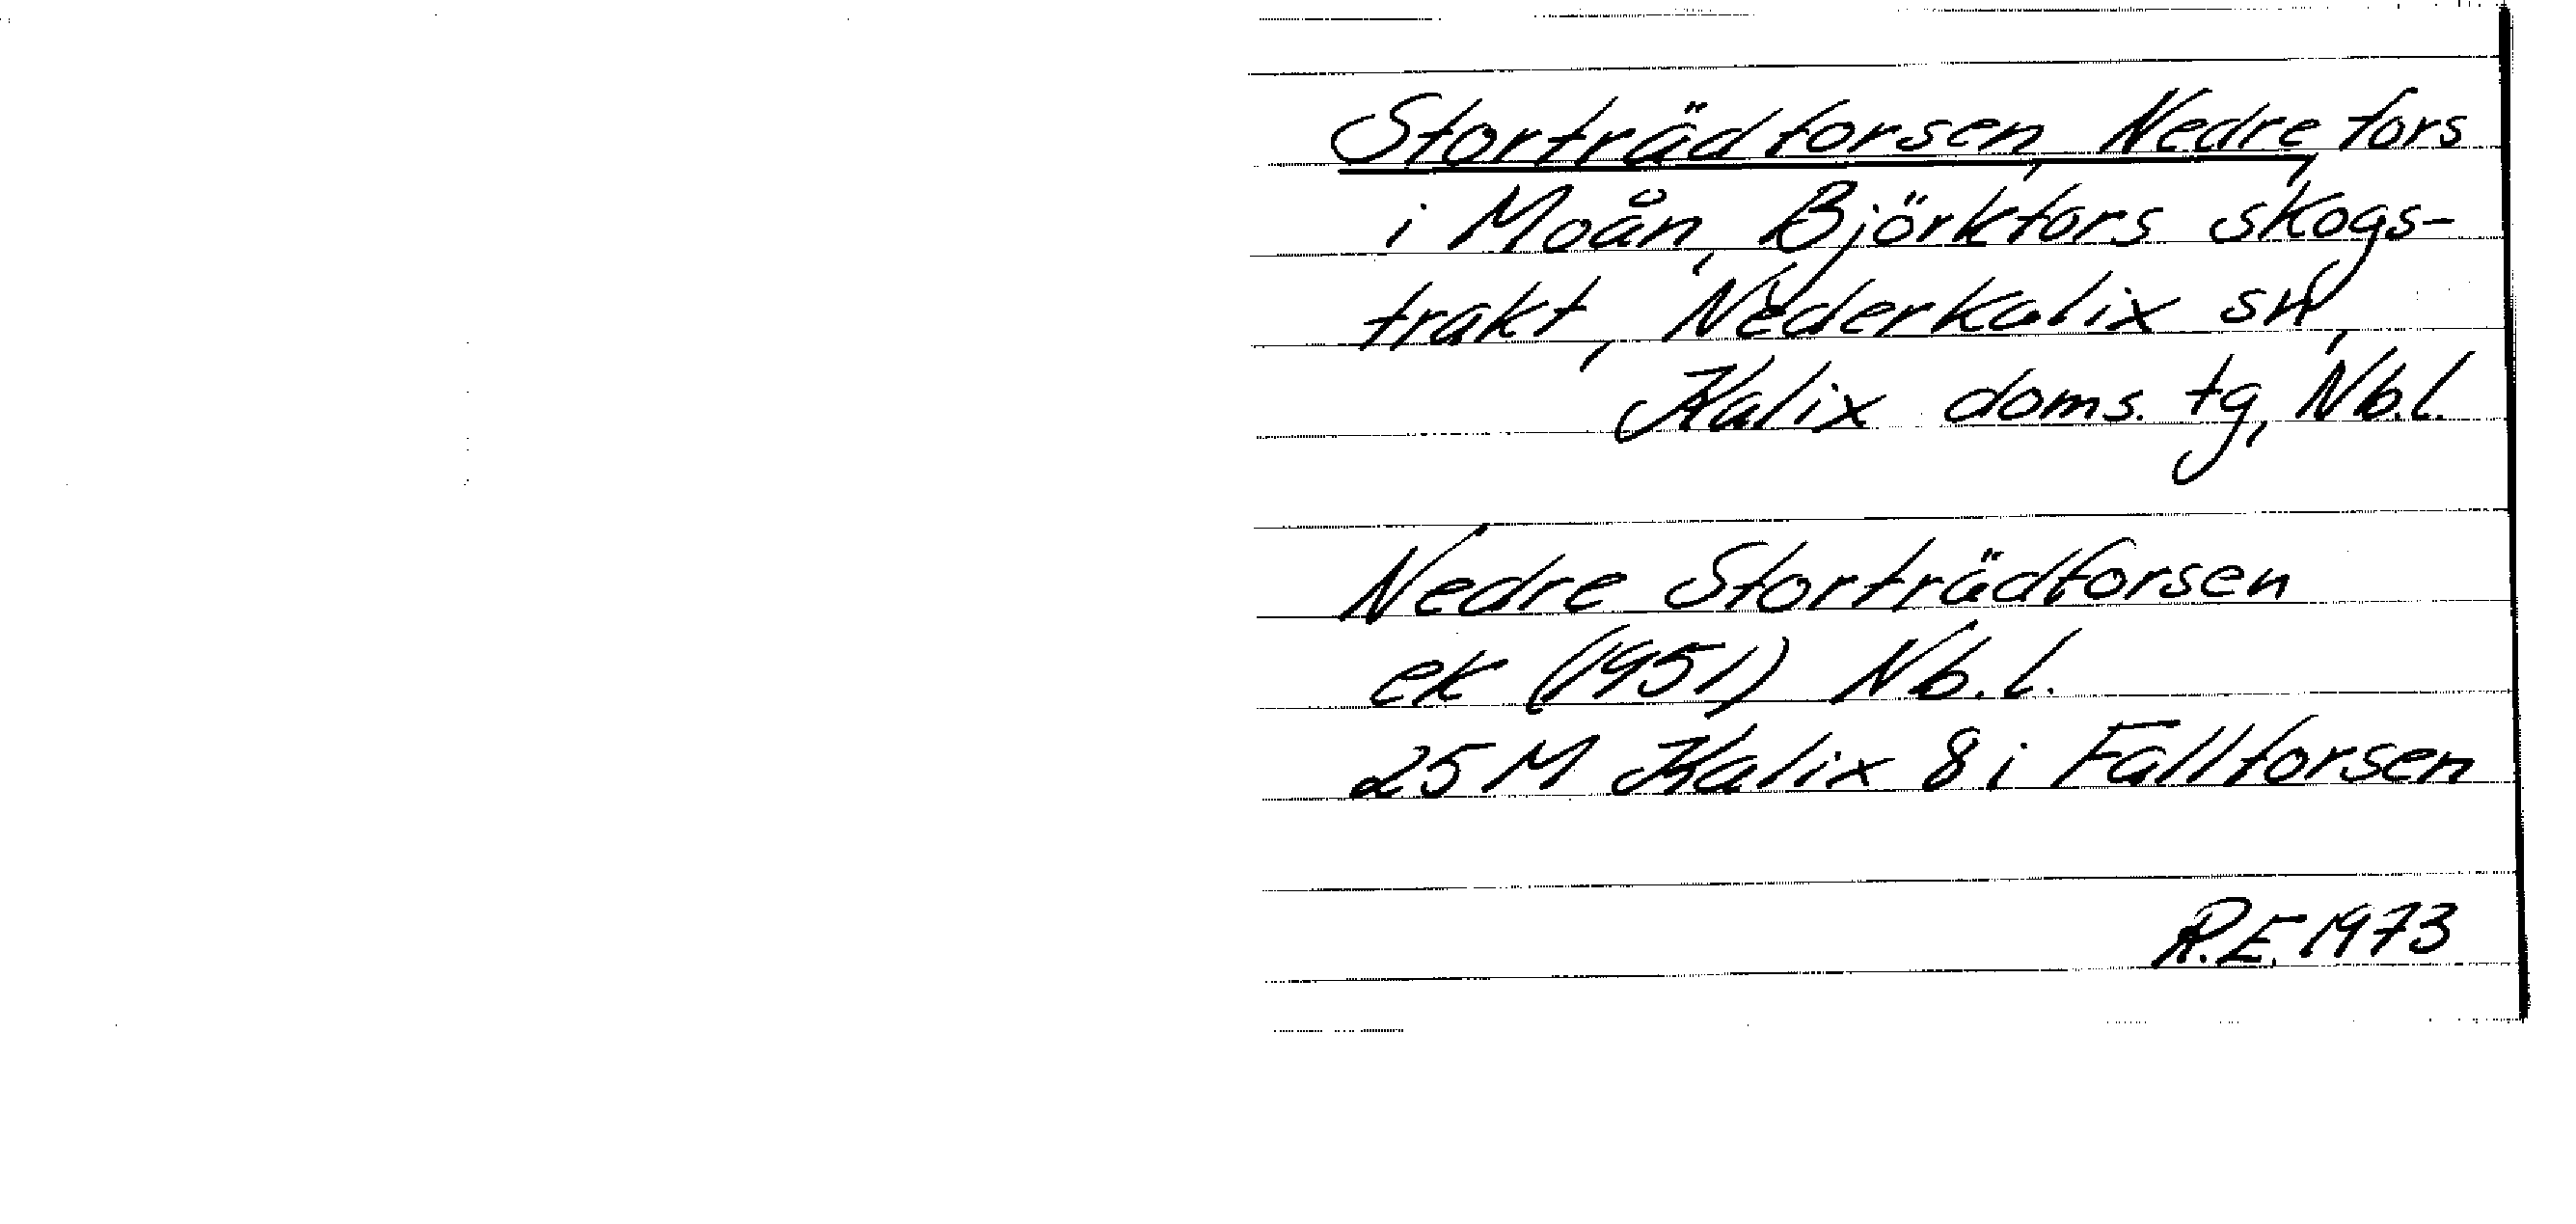 Storträdforsen, Nedre, fors
i Moån, Björkfors skogs-
trakt, Nederkalix sn,
Kalix doms. tg, Nb.l.
Nedre Storträdforsen
ek (1951) Nb.l.
25 M Kalix 8 i Fällforsen
R.E. 1973